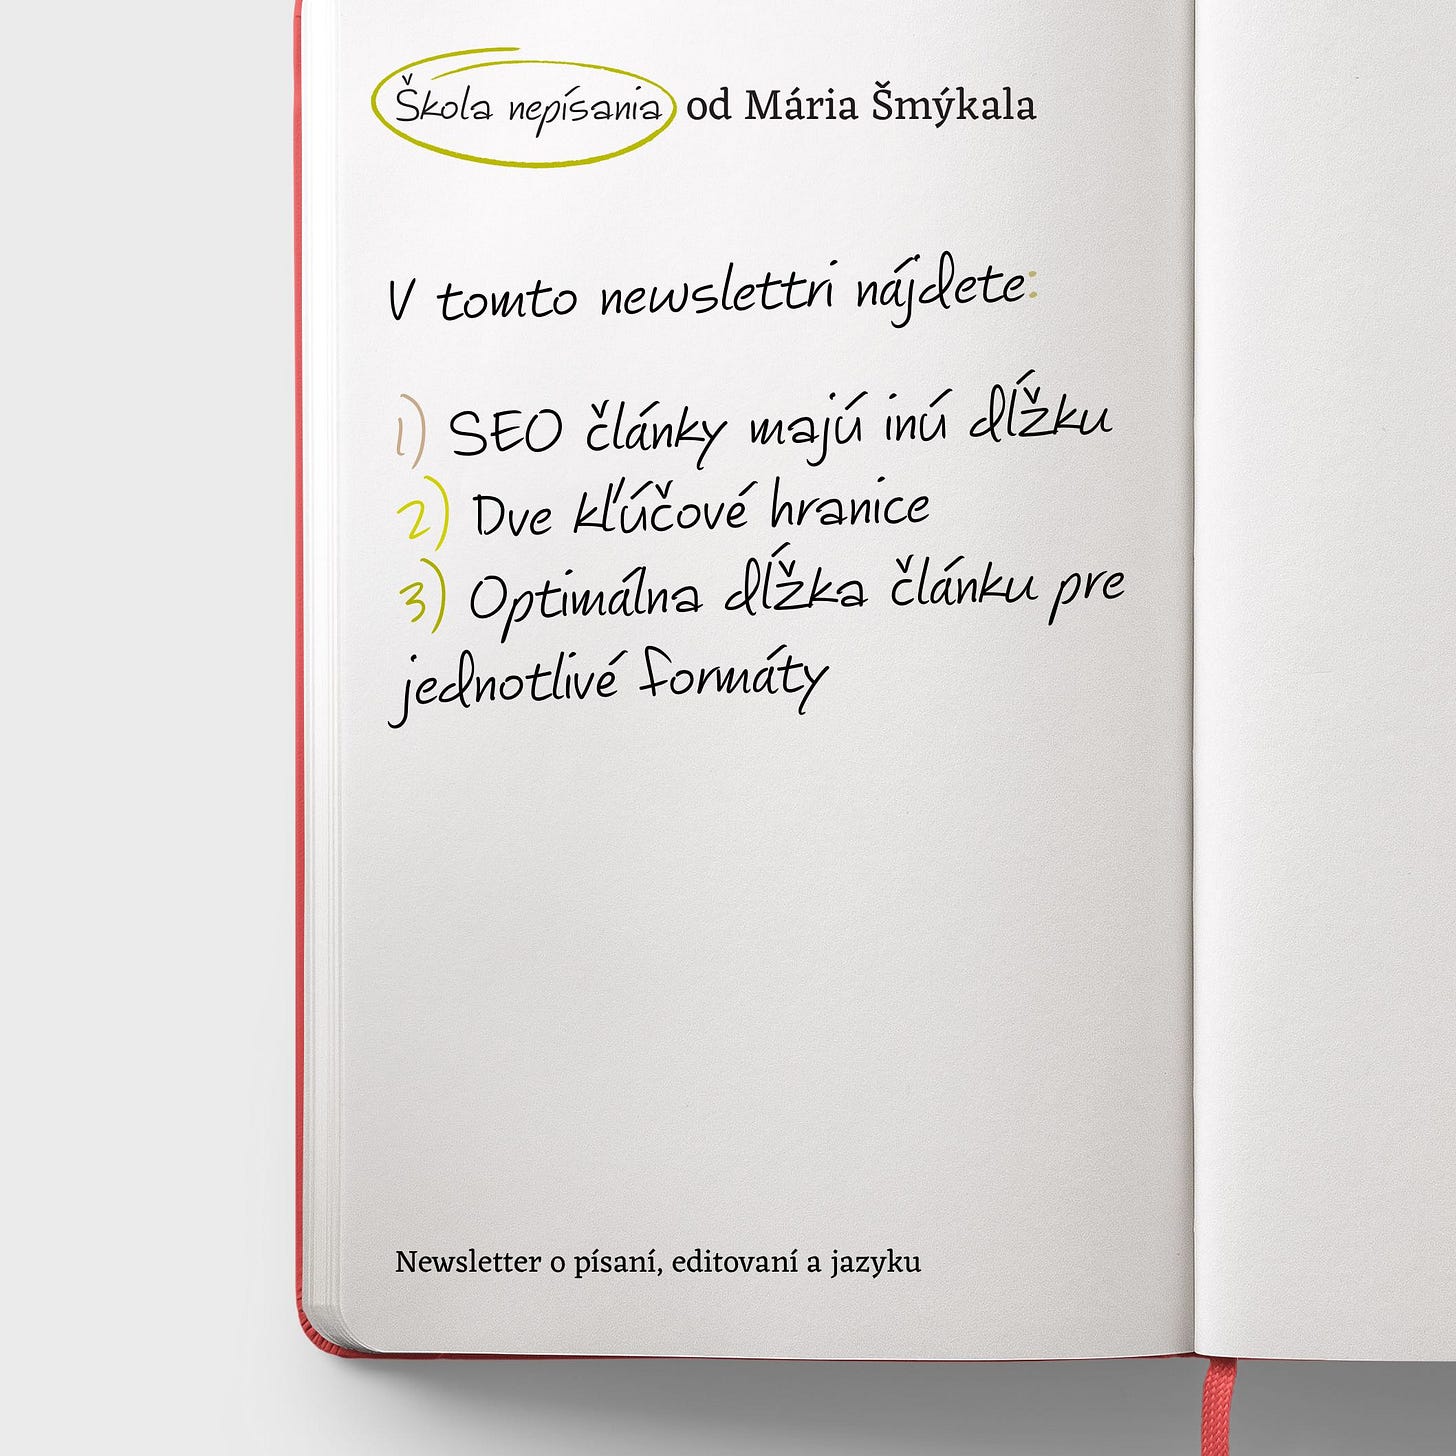 Škola nepísania od Mária Šmýkala
V tomto newslettri nájdete:
1) SEO články majú inú dĺžku
2) Dve kľúčové hranice
3) Optimálna dĺžka článku pre
jednotlivé formáty
Newsletter o písaní, editovaní a jazyku